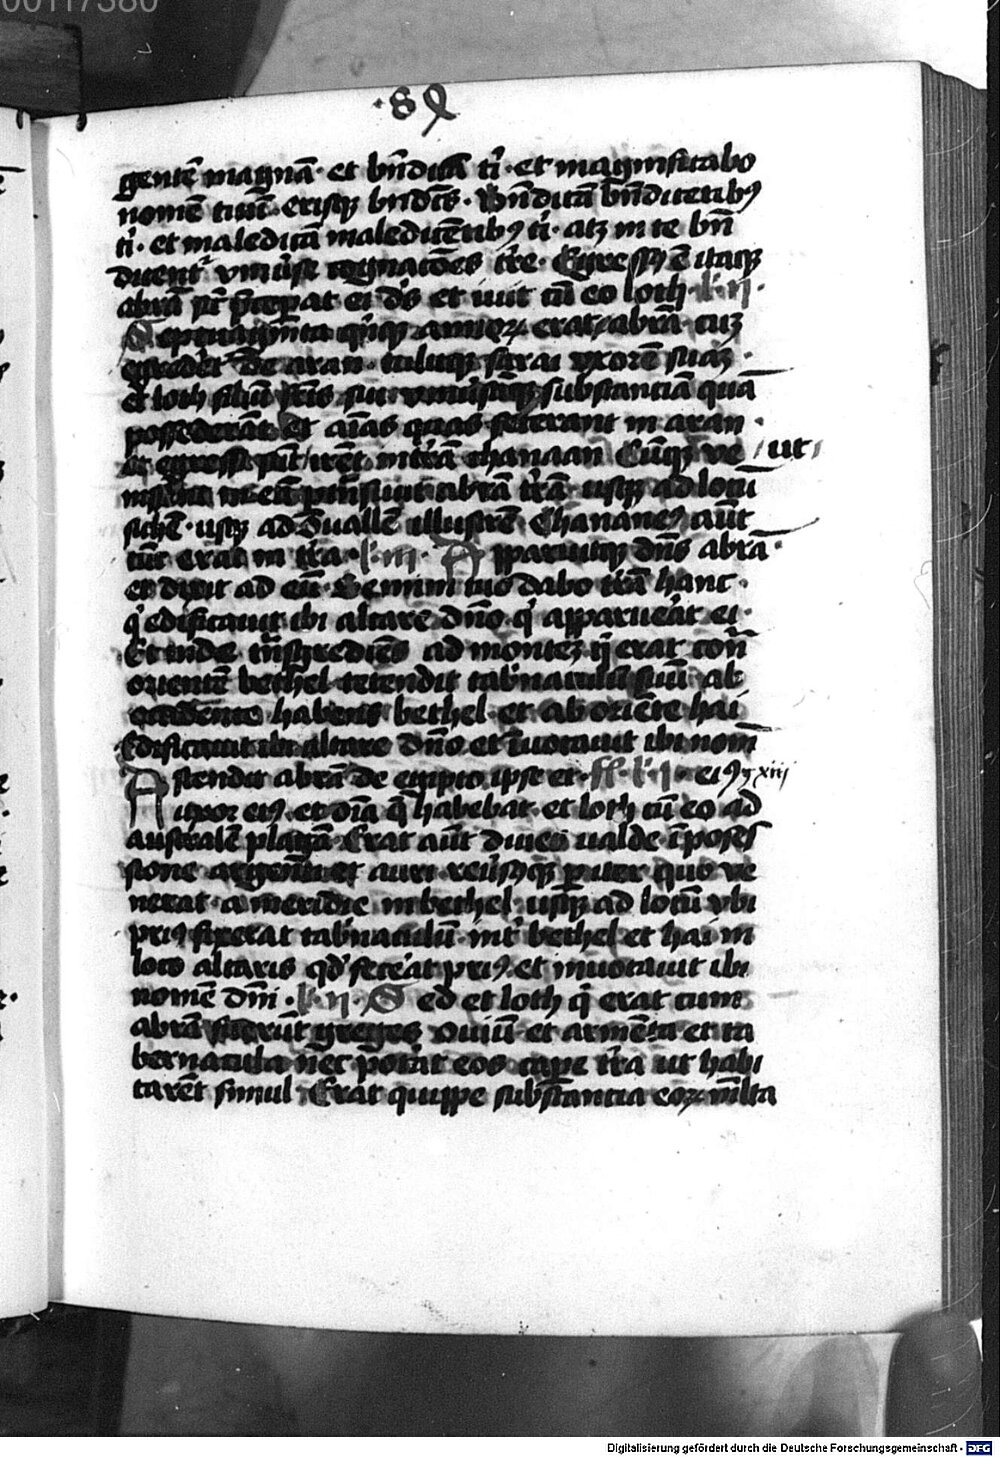 00117380
·84
gentē magnā · et bn̄dicā tī · et magnificabo
nomē tuū · erisqꝫ bn̄dc̄s · Bn̄dicā bn̄dicentibꝰ
tī · et maledicā maledicētibꝰ tī · atqꝫ in te bn̄
dicent vniūse cogͣtōes tr̄e · Egressꝰ ē itaqꝫ
abrā sic̄ p̄cepat ei dn̄s et iuit cū eo loth · l · ij ·
Septuagīta qnqꝫ annoꝝ erat abrā cuꝫ
egredēt de aran · tulitqꝫ sarai vxorē suaꝫ ·
et loth filiū fr̄is sui vniūsāqꝫ substanciā quā
possederāt et aīas quas fecerant in aran ·
et egressi sūt irēt in trā chanaan Cūqꝫ ve / ut /
nissent in eā ptn̄siuit abrā trā usqꝫ ad locū
sichē · usqꝫ ad Vallē illustrē Chananeꝰ aūt
tūc erat in tr̄a · l · iij · Apparuitqꝫ dn̄s abrā ·
et dixit ad eū Semini tuo dabo trā hanc ·
q̄ edificauit ibi altare dn̄o q̄ apparueāt ei ·
Et inde tn̄sgrediēs ad monteꝫ q̄ erat cōn̄
orientē bethel tetendit tab̄naculū suū ab
occidente habens bethel et ab oriēte hai
Edificauit ibi altare dn̄o et īuocauit ibi nom̄
Ascendit abrā de egipto ipse et · ff · l · j · c ꝯ xiij
uxor eiꝰ et oīa q̄ habebat et loth cū eo ad
australē plagā Erat aūt diues ualde ī poses
sione argenti et auri reūsusqꝫ p iter quo ve
nerat a meridie in bethel usqꝫ ad locū vbi
priꝰ fixerat tab̄naculū int̄ bethel et hai in
loco altaris qd̄ feceāt priꝰ et inuocauit ibi
nomē dn̄i · l · ij · Sed et loth q̄ erat cum
abrā fuerūt greges ouiū et armēta et ta
bernacula nec potāt eos cape tr̄a ut habi
tarēt simul Erat quippe substantia eoꝝ mlta
Digitalisierung gefördert durch die Deutsche Forschungsgemeinschaft - DFG